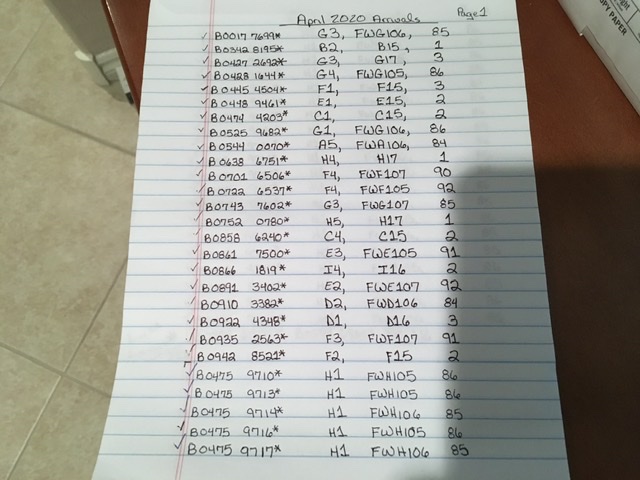 April 2020 Arrivals Page 1
✓ B0017 7699* G3, FWG106, 85
✓ B0342 8195* B2, B15, 1
✓ B0427 2692* G3, G17, 3
✓ B0428 1644* G4, FWG105, 86
✓ B0445 4504* F1, F15, 3
✓ B0448 9461* E1, E15, 2
✓ B0474 4203* C1, C15, 2
✓ B0525 9682* G1, FWG106, 86
✓ B0544 0070* A5, FWA106, 84
✓ B0638 6751* H4, H17 1
✓ B0701 6506* F4, FWF107 90
✓ B0722 6537* F4, FWF105 92
✓ B0743 7602* G3, FWG107 85
✓ B0752 0780* H5, H17 1
✓ B0858 6240* C4, C15 2
✓ B0861 7500* E3, FWE105 91
✓ B0866 1819* I4, I16 2
✓ B0891 3402* E2, FWE107 92
✓ B0910 3382* D2, FWD106 84
✓ B0922 4348* D1, D16 3
✓ B0935 2563* F3, FWF107 91
✓ B0942 8521* F2, F15 2
✓ B0475 9710* H1 FWH105 86
✓ B0475 9713* H1 FWH105 86
✓ B0475 9714* H1 FWH106 85
✓ B0475 9716* H1 FWH105 86
✓ B0475 9717* H1 FWH106 85
COPY PAPER